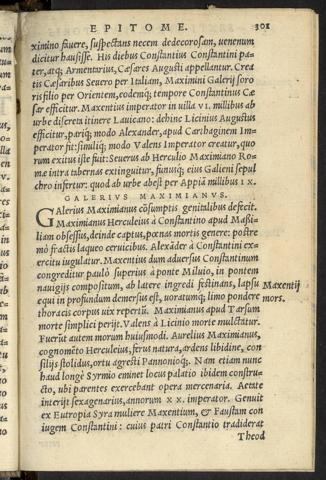 EPITOME. 301
ximino fauere, suspectans necem dedecorosam, uenenum
dicitur hausisse. His diebus Constantius Constantini pa-
ter, atq; Armentarius, Cæsares Augusti appellantur. Crea
tis Cæsaribus Seuero per Italiam, Maximini Galerij soro
ris filio per Orientem, eodemq; tempore Constantinus Cæ
sar efficitur. Maxentius imperator in uilla VI. millibus ab
urbe discreta itinere Lauicano: debinc Licinius Augustus
efficitur, pariq; modo Alexander, apud Carthaginem Im-
perator fit: similiq; modo Valens Imperator creatur, quo
rum exitus iste fuit: Seuerus ab Herculio Maximiano Ro-
mæ intra tabernas extinguitur, funusq; eius Galieni sepul
chro infertur: quod ab urbe abest per Appiā millibus IX.
GALERIVS MAXIMIANVS.
Galerius Maximianus cōsumptis genitalibus defecit.
Maximianus Herculeius à Constantino apud Maßi-
liam obsessus, deinde captus, pœnas mortis genere: postre
mò fractis laqueo ceruicibus. Alexāder à Constantini ex-
ercitu iugulatur. Maxentius dum aduersus Constantinum
congreditur paulò superius à ponte Miluio, in pontem
nauigijs compositum, ab latere ingredi festinans, lapsu
equi in profundum demersus est, uoratumq; limo pondere
thoracis corpus uix repertū. Maximianus apud Tarsum
morte simplici perijt. Valens à Licinio morte mulctatur.
Fuerūt autem morum huiusmodi. Aurelius Maximianus,
cognomēto Herculeius, ferus natura, ardens libidine, con
silijs stolidus, ortu agresti Pannonioq;. Nam etiam nunc
haud longè Syrmio eminet locus palatio ibidem constru-
cto, ubi parentes exercebant opera mercenaria. Aetate
interijt sexagenarius, annorum XX. imperator. Genuit
ex Eutropia Syra muliere Maxentium, & Faustam con
iugem Constantini: cuius patri Constantio tradiderat
Theod
Maxentij
mors.